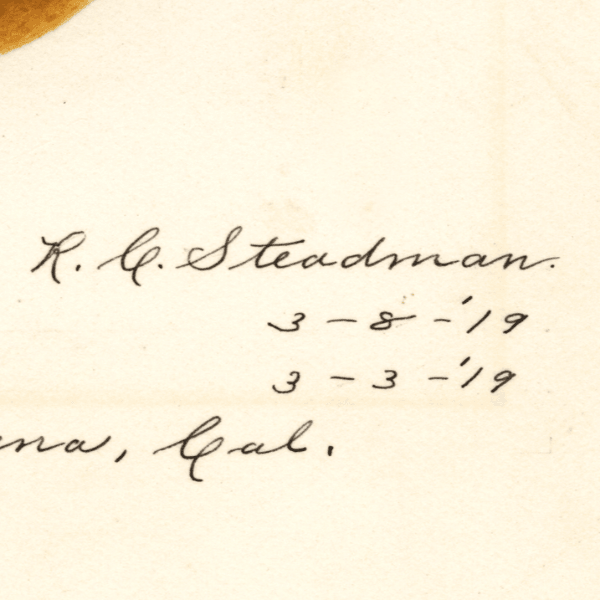 R. C. Steadman.
3-8-'19
3-3-'19
na, Cal.